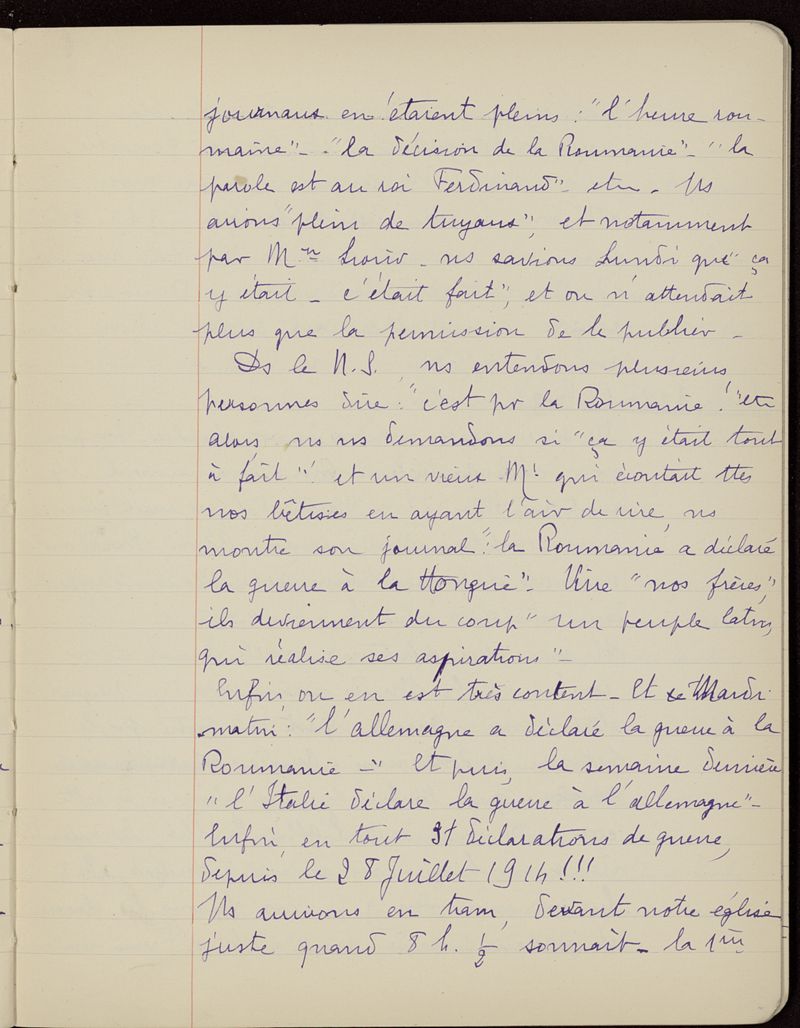 journaux en étaient pleins : "l'heure rou-
maine" - "la décision de la Roumanie" - "la
parole est au roi Ferdinand" - etc - Ns
avions "plein de tuyaux", et notamment
par Mme - ns savions Lundi que "ça
y était - c'était fait", et on n'attendait
plus que la permission de le publier -
Ds le N.S., ns entendons plusieurs
personnes dire : "c'est pr la Roumanie !" etc
alors, ns ns demandons si "ça y était tout
à fait" ! et un vieux Mr qui écoutait ttes
nos bêtises en ayant l'air de rire, ns
montre son journal : "la Roumanie a déclaré
la guerre à la Hongrie" - Vive "nos frères",
ils deviennent du coup "un peuple latin,
qui réalise ses aspirations" -
Enfin, on en est très content - Et le Mardi
matin : "l'allemagne a déclaré la guerre à la
Roumanie -" Et puis, la semaine dernière
"l'Italie déclare la guerre à l'allemagne" -
Enfin, en tout déclarations de guerre,
depuis le 28 Juillet 1914 !!!
Ns arrivons en tram, devant notre église
juste quand 8 h. 1/2 sonnait - la 1ère